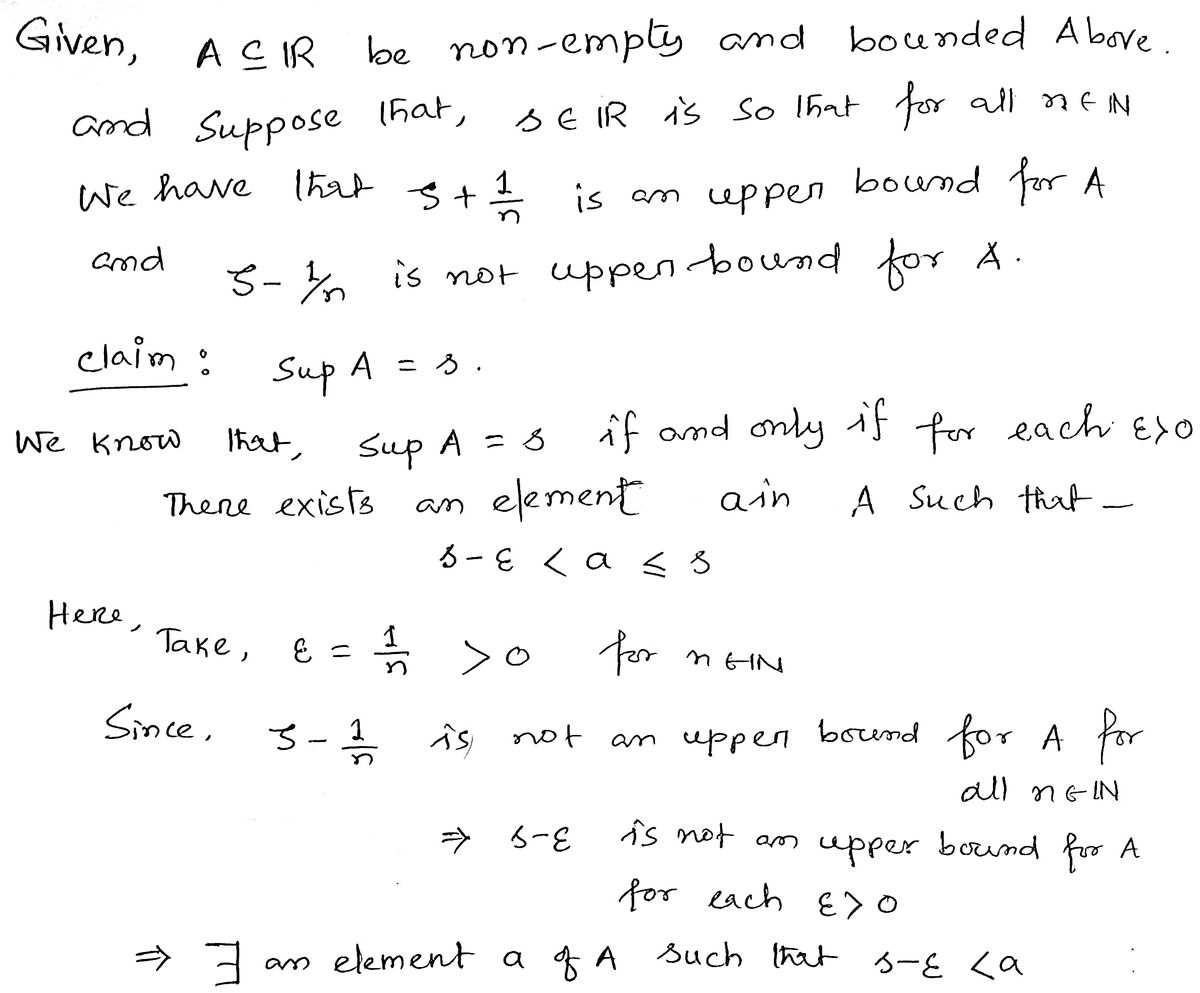 Given, A ⊆ ℝ be non-empty and bounded Above.
and Suppose that, s ∈ ℝ is so that for all n ∈ ℕ
We have that s + 1/n is an upper bound for A
and s - 1/n is not upper bound for A.
claim : Sup A = s.
We know that, Sup A = s if and only if for each ε>0
There exists an element a in A such that —
s - ε < a ≤ s
Here,
Take, ε = 1/n > 0 for n ∈ ℕ
Since, s - 1/n is not an upper bound for A for
all n ∈ ℕ
⇒ s-ε is not an upper bound for A
for each ε > 0
⇒ ∃ an element a of A such that s-ε < a